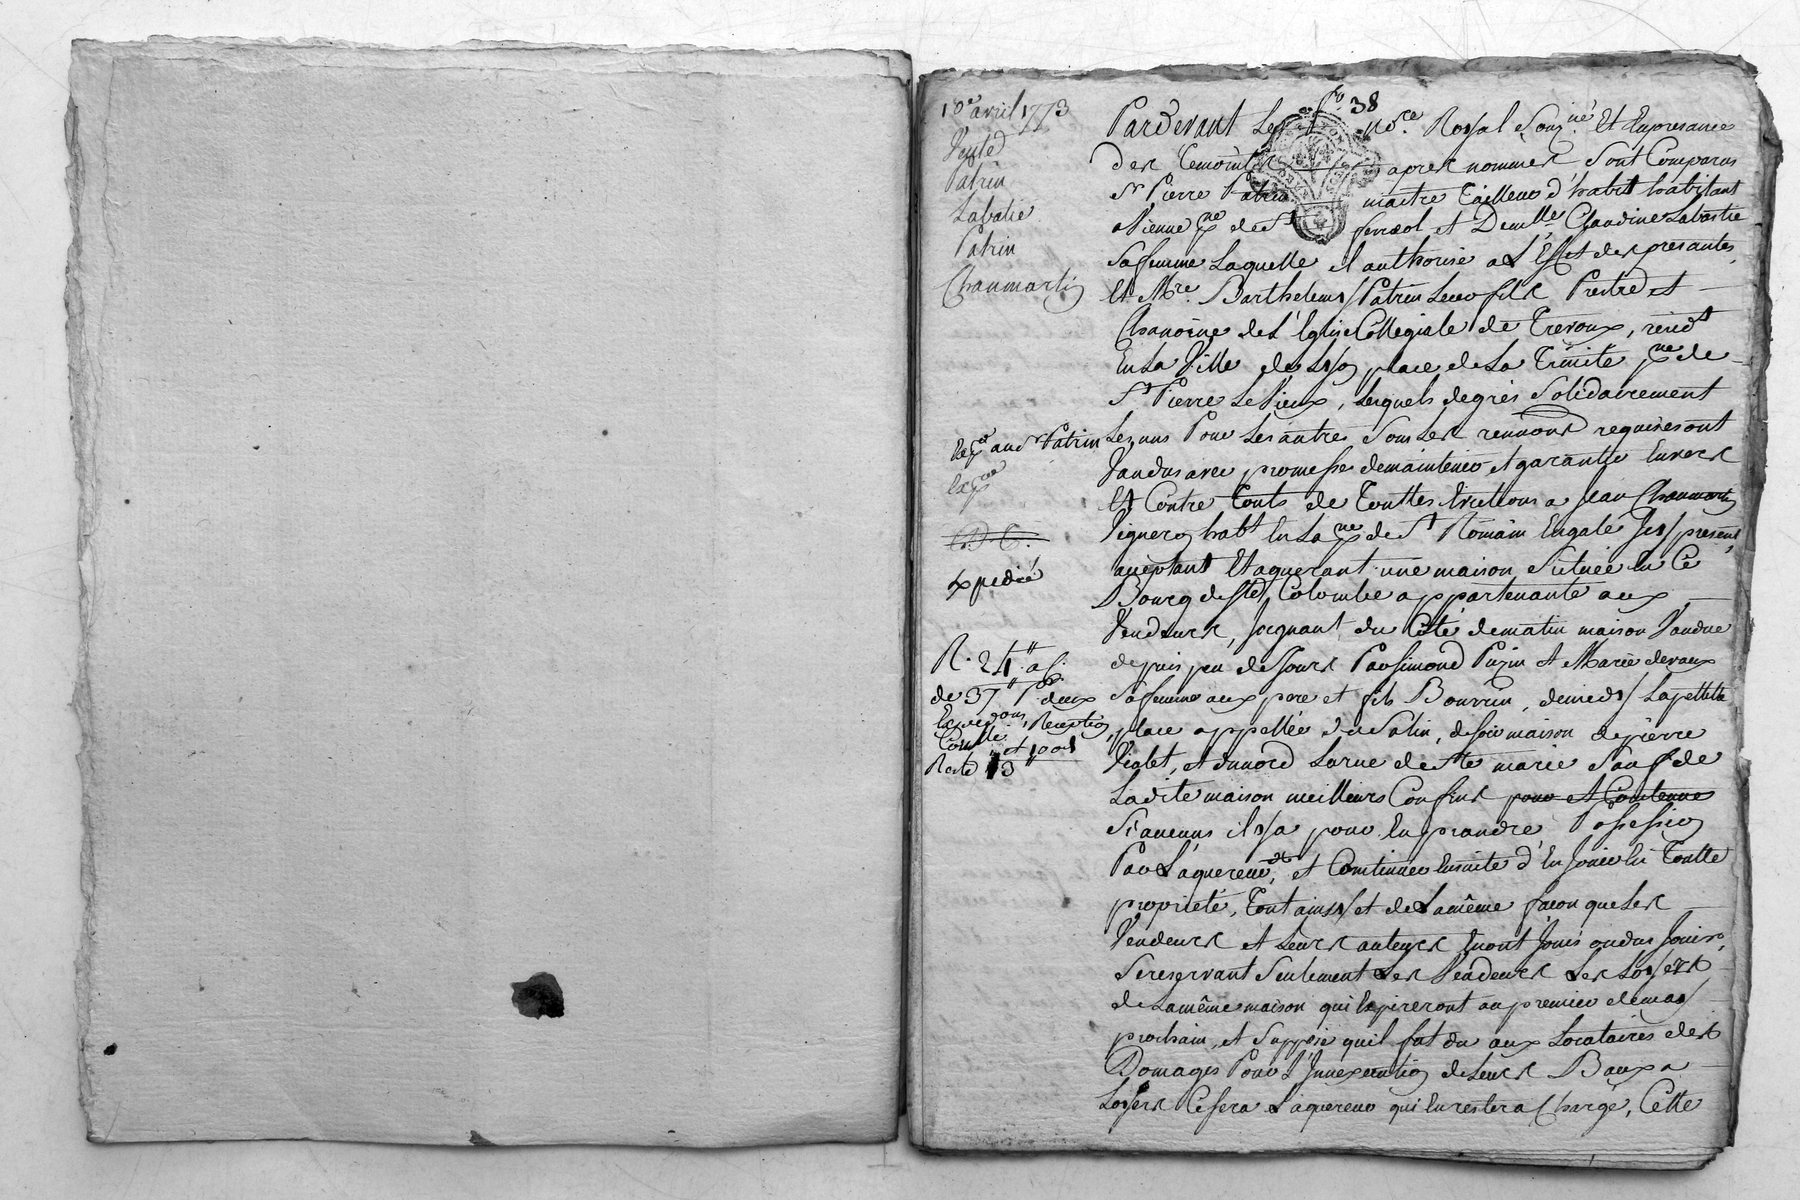 10e avril 1773
Vente
Patrin
Labatie
Patrin
Chaumartin
fo. 38
Pardevant Le no.re Royal Sousgné Et En presance
des Temoints apres nommes Sont Comparus
Sr Pierre Patrin maitre Tailleur d'habit habitant
a Vienne pse de St ferreol et Demlle Claudine Labastie
Sa femme Laquelle il authorise a L'Effet des presantes,
Et Mre. Barthelemy Patrin Leur fils Pretre et
Chanoine de L'Eglise Collegiale de Trevoux, residt
En La Ville de Lyon place de La Trinité pse de
St Pierre Le Vieux, Lesquels de gres Solidairement
Les uns Pour Les autres Sous Les renonons requises ont
Vandus avec promesse de maintenir et garantir Envers
Et Contre Touts de Touttes Evictions a Jean Chaumartin
Vigneron habt En La pse de St Romain Engale Icy present,
aceptant Et aquerant une maison Scituée En Ce
Bourg de Ste Colombe appartenante aux
Vendeurs, Joignant du Coté de matin maison Vandue
depuis peu de Jours Par Simond Puzin et Marie devaux
Sa femme aux pere et fils Bourrin, de midy La petitte
place appellée du Salin, de soir maison de pierre
Violet, et du nord La rue de Ste marie Sauf de
La dite maison meilleurs Confins pour et Contenue
Si aucuns il y a pour En prandre Possession
Par L'aquereur, et Continuer Ensuite d'En Jouir En Toutte
proprieté, Tout ainsy et de La même façon que Les
Vendeurs et Leurs auteurs En ont Joui ou du Jouir,
Se reservant Seulement Les Vendeurs Les Loyers
de La même maison qui Expireront au premier de may
prochain, et Supposé quil fut du aux Locataires des
Domages Pour L'Inexecution de Leurs Baux a
Loyers Ce sera L'aquereur qui En restera Chargé, Cette
Patrin
D. C.
Expedié
R. 24
de 37
Reception
Reste 13